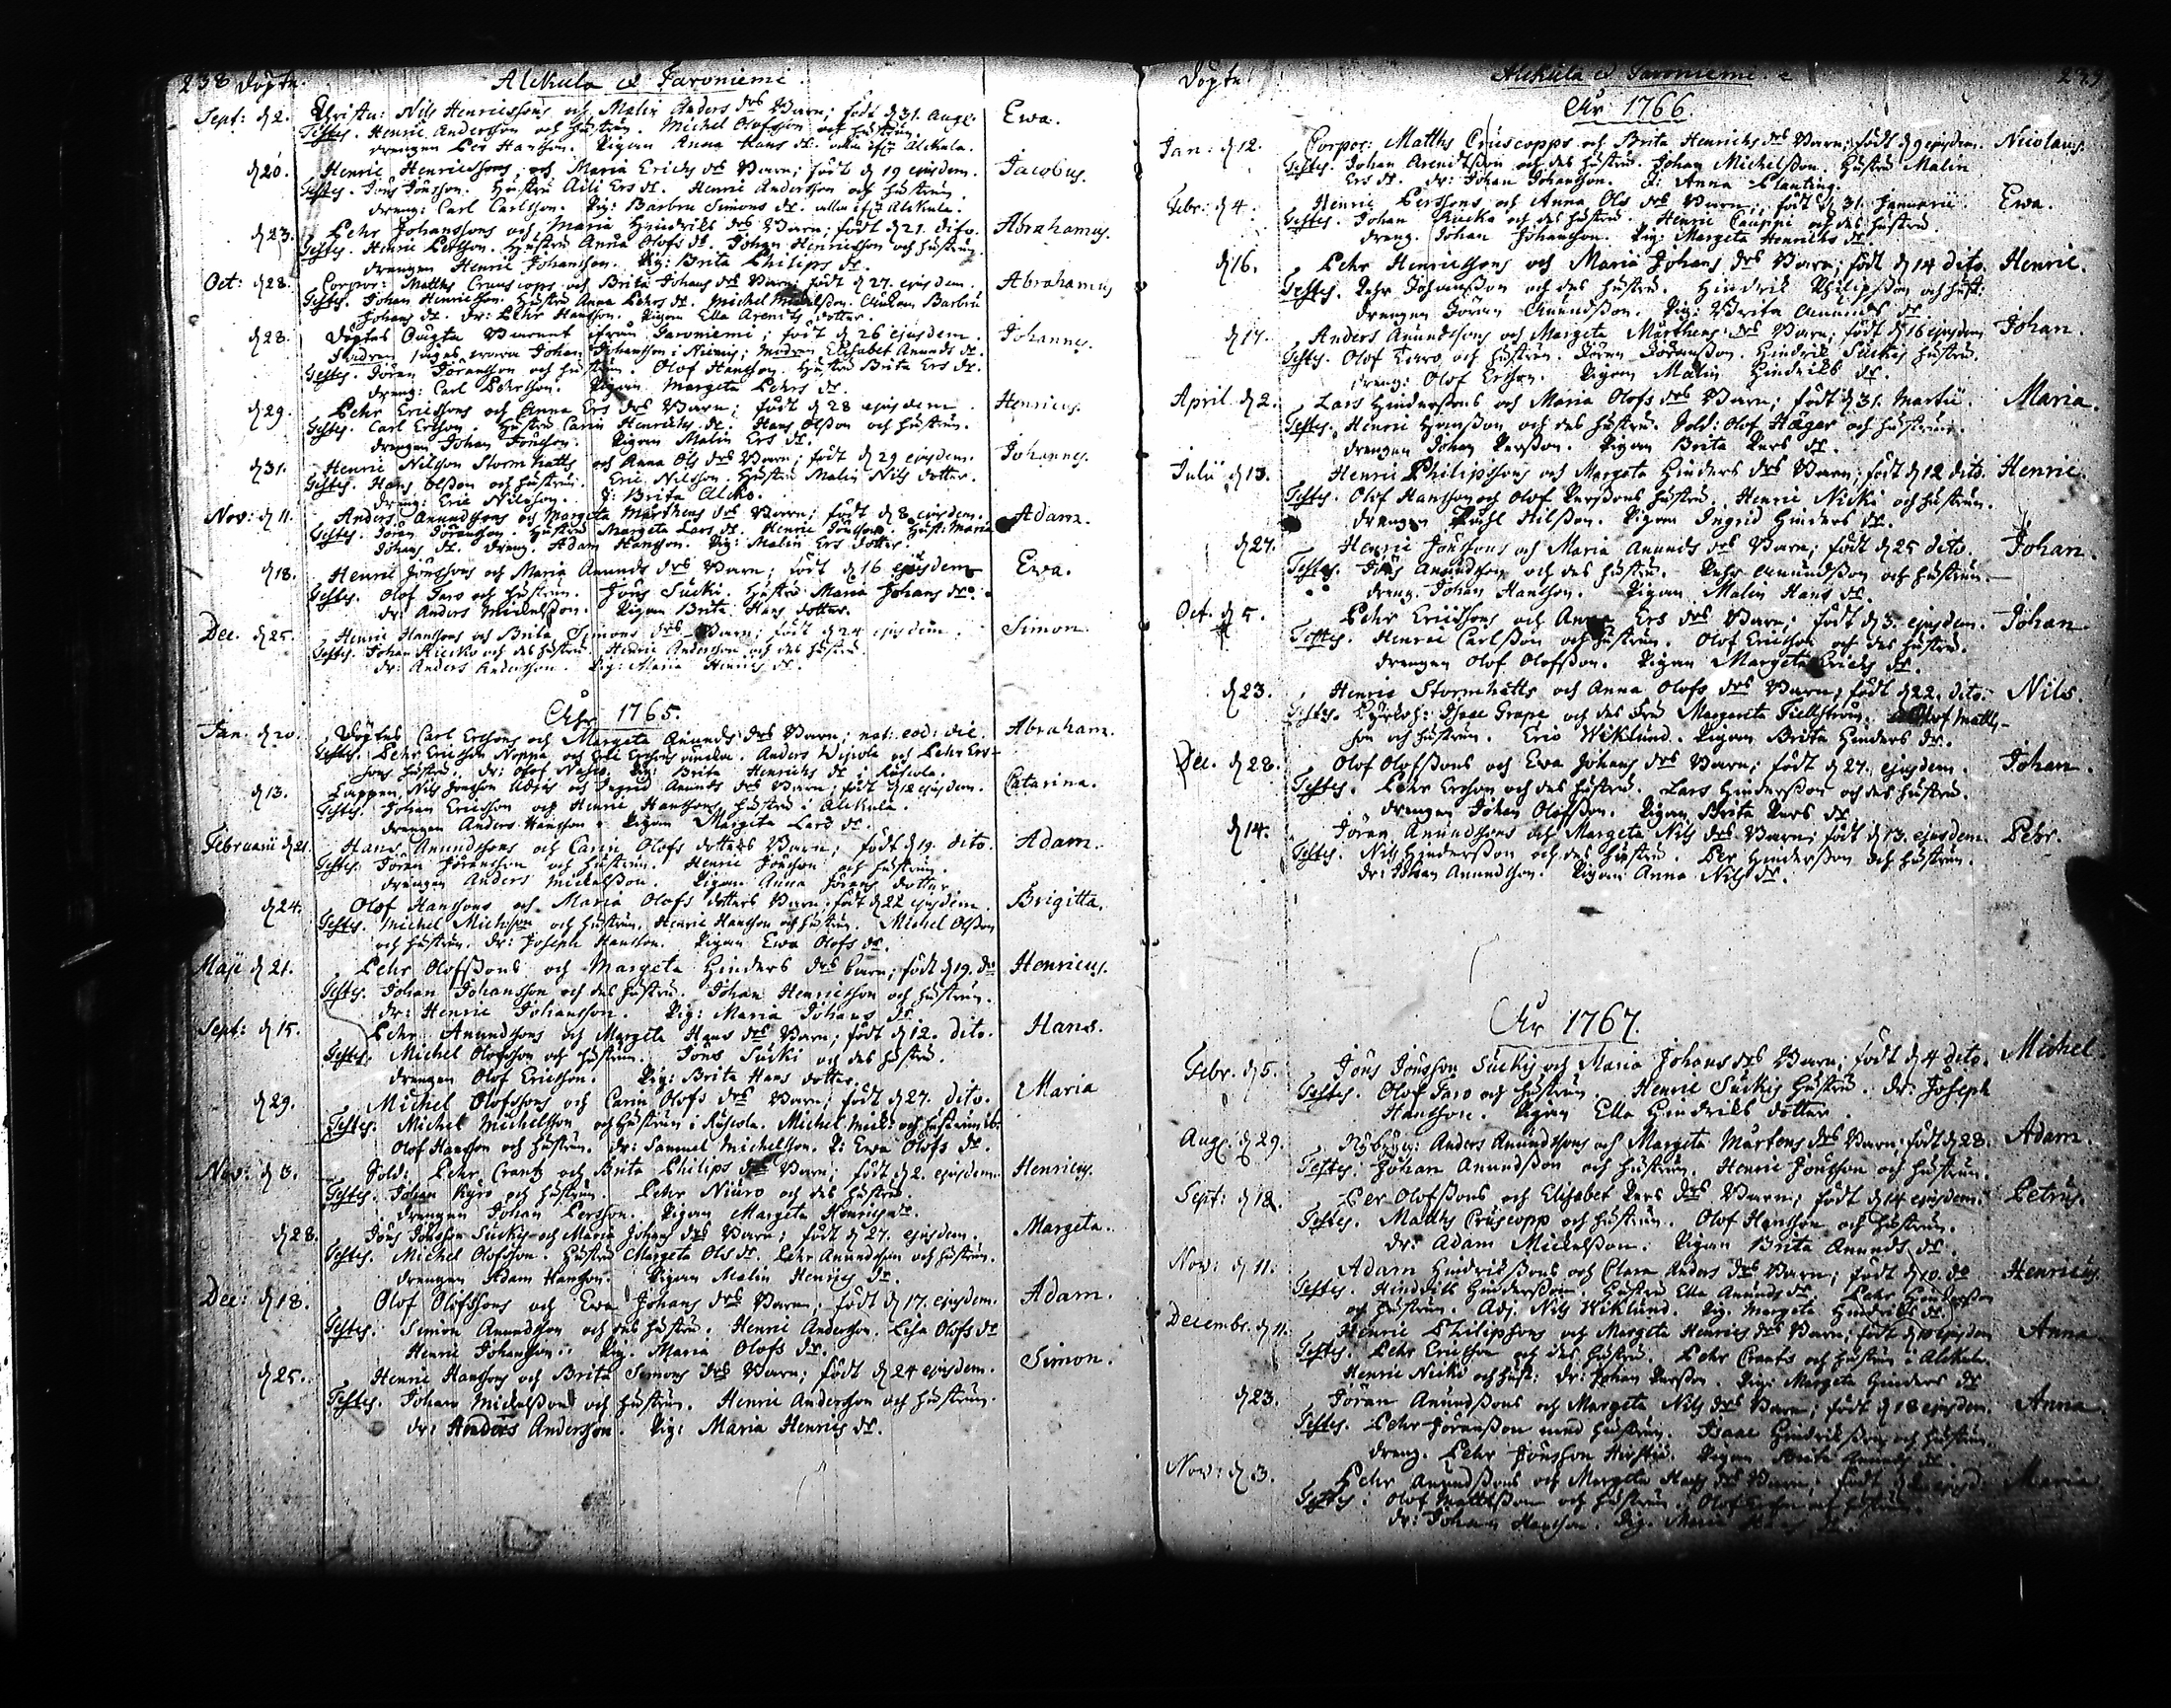 238 Döpte. Alckula & Jaroniemi
Sept: d 2. Christu: Nils Henricssons och Malin Anders drs Barn; födt d 31. Aug: Ewa.
Testes. Henric Andersson och hustrun. Michel Olofsson och hustrun.
drengen Per Hansson. Pigan Anna Hans dr. alla ifrån Alckula.
d 20. Henric Henricssons och Maria Erichs drs Barn; födt d 19 ejusdem. Jacobus.
Testes. Jöns Jönsson. Hustru Aili Ers dr. Henric Andersson och hustrun
dreng: Carl Carlsson. Pig: Barbru Simons dr. alla ifrån Alckula.
d 23. Pehr Johanssons och Maria Hindriks drs Barn; födt d 21. dito. Abrahamus.
Testes. Henric Persson. Hustru Anna Olofs dr. Johan Henricsson och hustrun.
drengen Henric Johansson. Pig: Brita Philips dr.
Oct: d 28. Corpor: Matths Cruuscops och Brita Johans drs Barn; födt d 27. ejusdem. Abrahamus
Testes. Johan Henricsson. Hustru Anna Pehrs dr. Michel Michelsson. Enkan Barbru
Johans dr. dr: Pehr Hansson. Pigan Ella Arenits dotter.
d 28. Döptes Oägta Barnet ifrån Jaroniemi; födt d 26 ejusdem. Johannes.
Fadren säges wara Johan Johansson i Niemis; modren Elisabet Anunds dr.
Testes. Jöran Jöransson och hustrun. Olof Hansson. Hustru Brita Ers dr.
dreng: Carl Pehrsson. Pigan Margeta Pehrs dr.
d 29. Pehr Ericssons och Anna Ers drs Barn; födt d 28 ejusdem. Henricus.
Testes. Carl Ersson. Hustru Carin Henrichs dr. Hans Olsson och hustrun.
drengen Johan Jönsson. Pigan Malin Ers dr.
d 31. Henric Nilsson Stormhatts och Anna Ols drs Barn; födt d 29 ejusdem. Johannes.
Testes. Hans Olsson och hustrun. Eric Nilsson. Hustru Malin Nils dotter.
dreng: Eric Nilsson. P: Brita Alcko.
Nov: d 11. Anders Anundssons och Margeta Mårthens drs Barn; födt d 8 ejusdem. Adam.
Testes. Jöran Jöransson. Hustru Margeta Lars dr. Henric Jönsson. Hust: Maria
Johans dr. dreng. Adam Hansson. Pig: Malin Ers dotter.
d 18. Henric Jönssons och Maria Anunds drs Barn; födt d 16 ejusdem Ewa.
Testes. Olof Jaro och hustrun. Jöns Sücki. Hustru Maria Johans dr.
dr: Anders Mickelsson. Pigan Brita Hans dotter.
Dec. d 25. Henric Hanssons och Brita Simons drs Barn; födt d 24 ejusdem. Simon.
Testes. Johan Kucko och des hustru. Henric Andersson och des hustru
dr: Anders Andersson. Pig: Maria Henrics dr.
Åhr 1765.
Jan. d 20. Döptes Carl Erssons och Margeta Anunds drs Barn; nat: eod: die. Abraham.
Testes. Pehr Ericsson Noppa och Erssons Anders och Pehr Ers-
sons hustru. dr: Olof Pig: Brita Henrichs dr i Kuscola.
d 13. Lappen Nils Jonsson och Ingrid Anunds drs Barn; födt d 12 ejusdem. Catarina.
Testes. Johan Ericsson och Henric Hanssons hustru i Alckula.
drengen Anders Hansson. Pigan Margeta Lars dr.
Februarii d 21. Hans Anundssons och Carin Olofs dotters Barn; födt d 19. dito. Adam.
Testes. Jöran Jöransson och hustrun. Henric Jönsson och hustrun.
drengen Anders Mickelsson. Pigan Anna Jörans dotter.
d 24. Olof Hanssons och Maria Olofs dotters Barn; födt d 22 ejusdem. Brigitta.
Testes. Michel Michsson och hustrun. Henric Hansson och hustrun. Michel Olsson
och hustrun. dr: Joseph Hansson. Pigan Ewa Olofs dr.
Maji d 21. Pehr Olofssons och Margeta Hinders drs barn; födt d 19. do Henricus.
Testes. Johan Johansson och des hustru. Johan Henricsson och hustrun.
dr: Henric Johansson. Pig: Maria Johans dr.
Sept: d 15. Pehr Anundssons och Margeta Hans drs Barn; födt d 12. dito. Hans.
Testes. Michel Olofsson och hustrun. Jöns Sücki och des hustru.
drengen Olof Ericsson. Pig: Brita Hans dotter.
d 29. Michel Olofssons och Carin Olofs drs Barn; födt d 27. dito. Maria
Testes. Michel Michelsson och hustrun i Kuscola. Michel Mick: och hustrun ib:
Olof Hansson och hustrun. dr: Samuel Michelsson. P: Ewa Olofs dr.
Nov: d 3. Sold: Pehr Crantz och Brita Philips drs Barn; födt d 2. ejusdem. Henricus.
Testes. Johan Kyro och hustrun. Pehr Niuro och des hustru.
drengen Johan Persson. Pigan Margeta Henrics dr.
d 28. Jöns Jönsson Sückis och Maria Johans drs Barn; födt d 27. ejusdem. Margeta.
Testes. Michel Olofsson. Hustru Margeta Ols dr. Pehr Anundsson och hustrun.
drengen Adam Hansson. Pigan Malin Henrics dr.
Dec: d 18. Olof Olofssons och Ewa Johans drs Barn; födt d 17. ejusdem. Adam.
Testes. Simon Anundsson och des hustru. Henric Andersson. Lisa Olofs dr
Henric Johansson. Pig. Maria Olofs dr.
d 25. Henric Hanssons och Brita Simons drs Barn; födt d 24 ejusdem. Simon.
Testes. Johan Mickelsson och hustrun. Henric Andersson och hustrun.
dr: Anders Andersson. Pig: Maria Henrics dr.
Döpte Alckula & Jaroniemi 239
Åhr 1766.
Jan: d 12. Corpor: Matths Cruscopps och Brita Henrichs drs Barn; födt d 9 ejusdem. Nicolaus.
Testes. Johan Arenitsson och des hustru. Johan Michelsson. Hustru Malin
Ers dr. dr: Johan Johansson. P: Anna Planting.
Febr: d 4. Henric Perssons och Anna Ols drs Barn; födt d 31. Januarii. Ewa.
Testes. Johan Kucka och des hustru. Henric Cauppi och des hustru.
dreng. Johan Johansson. Pig: Margeta Henrichs dr.
d 16. Pehr Henricssons och Maria Johans drs Barn; födt d 14 dito Henric.
Testes. Pehr Johansson och des hustru. Hindrik Philipsson och hust:
drengen Jöran Anundsson. Pig: Brita Anunds dr.
d 17. Anders Anundssons och Margeta Mårthens drs Barn; födt d 16 ejusdem Johan.
Testes. Olof Jaro och hustrun. Jöran Jöransson. Hindrik Sückis hustru.
dreng: Olof Ersson. Pigan Malin Hindriks dr.
April. d 2. Lars Hinderssons och Maria Olofs drs Barn; födt d 31. Martii. Maria.
Testes. Henric Hansson och des hustru. Sold: Olof Häger och hustrun.
drengen Johan Persson. Pigan Brita Pers dr.
Julii d 13. Henric Philipssons och Margeta Hinders drs Barn; födt d 12 dito. Henric.
Testes. Olof Hansson och Olof Perssons hustru. Henric Nicki och hustrun.
drengen Påhl Nilsson. Pigan Ingrid Hinders dr.
d 27. Henric Jönssons och Maria Anunds drs Barn; födt d 25 dito. Johan.
Testes. Jöns Anundsson och des hustru. Pehr Anundsson och hustrun
dreng. Johan Hansson. Pigan Malin Hans dr.
Oct. d 5. Pehr Ericssons och Anna Ers drs Barn; födt d 3. ejusdem. Johan.
Testes. Henric Carlsson och hustrun. Olof Ericsson och des hustru.
drengen Olof Olofsson. Pigan Margeta Erichs dr.
d 23. Henric Stormhatts och Anna Olofs drs Barn; födt d 22. dito. Nils.
Testes. Kyrkoh: Isaac Grape och des Fru Margareta Fiellström. Olof Matts-
son och hustrun. Eric Wiklund. Pigan Brita Hinders dr.
Dec. d 28. Olof Olofssons och Ewa Johans drs Barn; födt d 27. ejusdem. Johan.
Testes. Pehr Ersson och des hustru. Lars Hindersson och des hustru.
drengen Johan Olofsson. Pigan Brita Pers dr.
d 14. Jöran Anundssons och Margeta Nils drs Barn; födt d 13. ejusdem. Pehr.
Testes. Nils Hindersson och des hustru. Per Hindersson och hustrun.
dr: Johan Anundsson. Pigan Anna Nils dr.
Åhr 1767.
Febr. d 5. Jöns Jönsson Sückis och Maria Johans drs Barn; födt d 4 dito. Michel.
Testes. Olof Jaro och hustrun. Henric Sückis hustru. dr: Joseph
Hansson. Pigan Ella Hindriks dotter.
Aug: d 29. Nybygg: Anders Anundssons och Margeta Mårtens drs Barn; födt d 28. Adam.
Testes. Johan Anundsson och hustrun. Henric Jönsson och hustrun.
Sept: d 18. Per Olofssons och Elisabet Pers drs Barn; födt d 14 ejusdem. Petrus.
Testes. Matths Cruscopp och hustrun. Olof Hansson och hustrun.
dr: Adam Mickelsson. Pigan Brita Anunds dr.
Nov: d 11. Adam Hindrikssons och Clara Anders drs Barn; födt d 10. do Henricus.
Testes. Hindrik Hindersson. Hustru Ella Anunds dr. Pehr Hindersson
och hustrun. Adj. Nils Wiklund. Pig. Margeta Hindriks dr.
Decembr. d 11. Henric Philipssons och Margeta Henrics drs Barn; födt d 10 ejusdem Anna
Testes. Pehr Ericsson och des hustru. Pehr Crants och hustrun i Alckula.
Henric Nicki och hust: dr: Johan Persson. Pig: Margeta Hinders dr
d 23. Jöran Anundssons och Margeta Nils drs Barn; födt d 18 ejusdem. Anna.
Testes. Pehr Jöransson med hustrun. Isaac Hindriksson och hustrun.
dreng. Pehr Jönsson Pigan Brita Anunds dr.
Nov: d 3. Pehr Anundssons och Margeta Hans drs Barn; födt d Maria
Testes: Olof Mattsson och hustrun. Olof Ersson och hustrun
dr: Johan Hansson. Pig. Maria Hans dr.